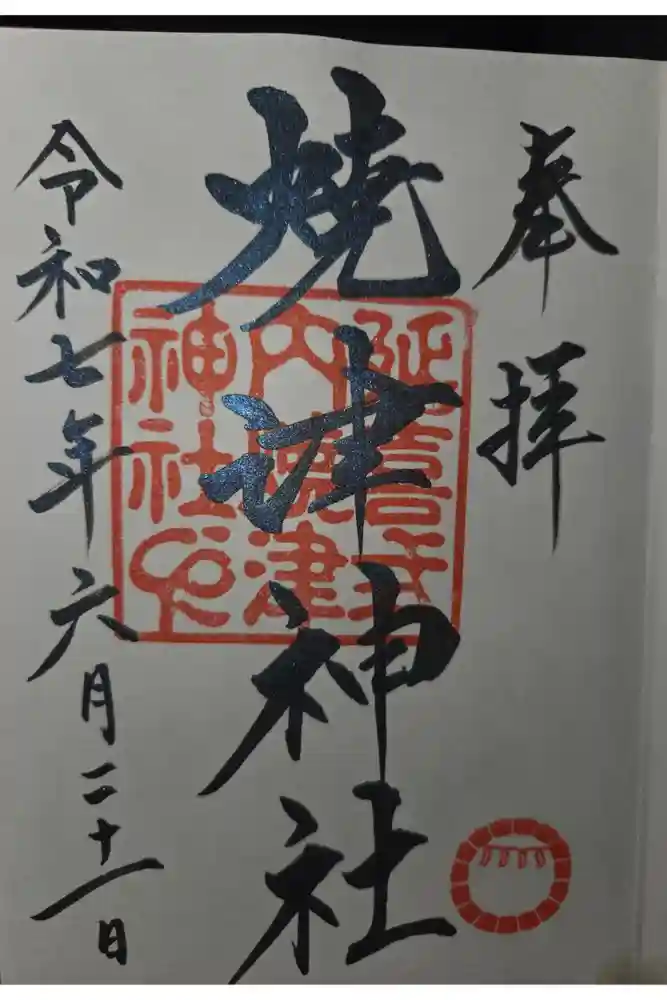 奉拝
燒津神社
延喜式
内燒津
神社印
令和七年六月二十一日